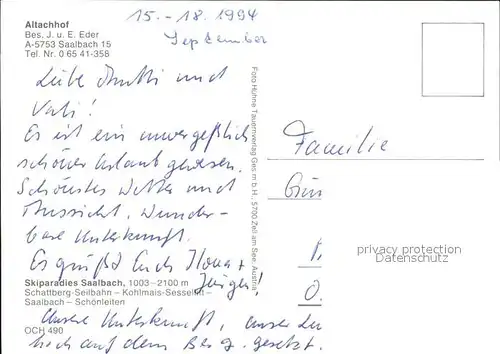 Altachhof
Bes. J. u. E. Eder
A-5753 Saalbach 15
Tel. Nr. 0 65 41-358
15.-18. 1994
September
Liebe Mutti und
Vati!
Es ist ein unvergeßlich
schöner Urlaub gewesen.
Schönstes Wetter und
Aussicht. Wunder-
bare Unterkunft.
Es grüßt Euch Ilona +
Jürgen.
Skiparadies Saalbach, 1003–2100 m
Schattberg-Seilbahn – Kohlmais-Sessellift –
Saalbach – Schönleiten
OCH 490
Unsere Unterkunft, unser
hoch auf dem Berg. gesetzt.
Foto Huhne Tauernverlag Ges.m.b.H., 5700 Zell am See, Austria
Familie
Gün
privacy protection
Datenschutz
O.